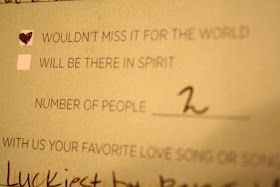 WOULDN'T MISS IT FOR THE WORLD
WILL BE THERE IN SPIRIT
NUMBER OF PEOPLE 2
WITH US YOUR FAVORITE LOVE SONG OR SONG
Luckiest by Ben